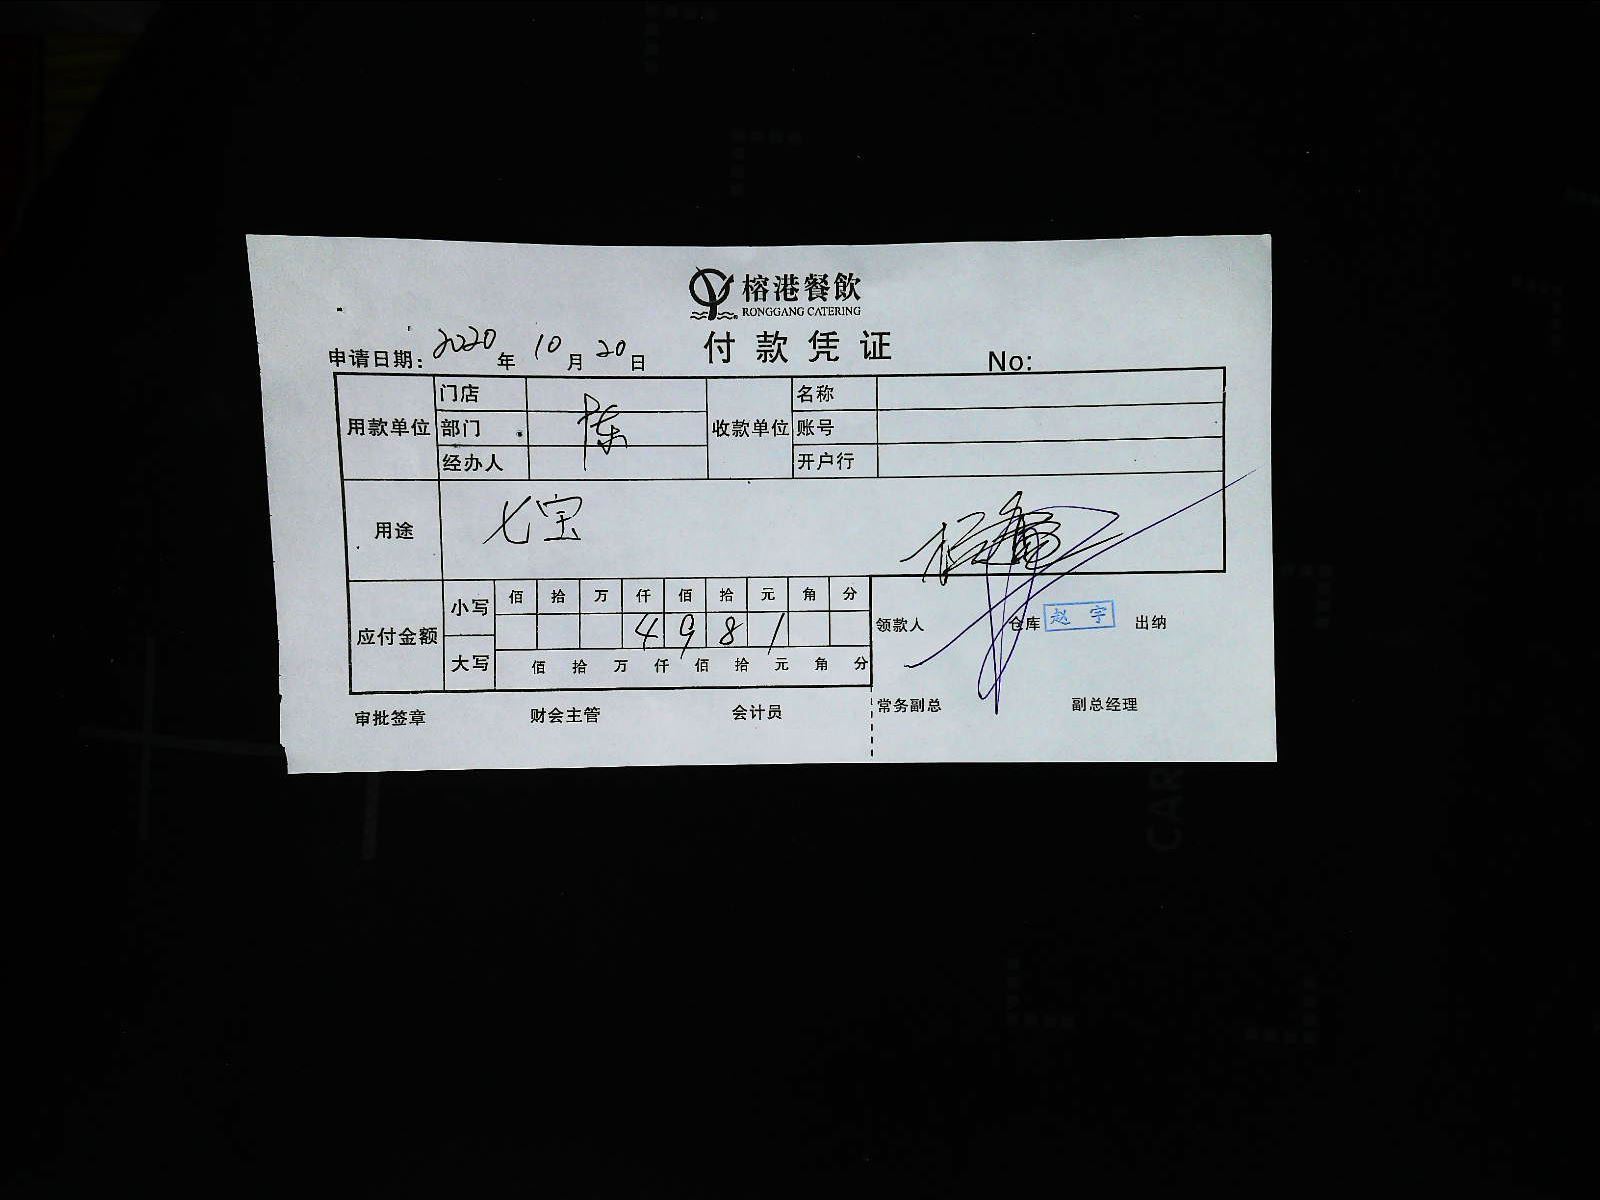 榕港餐飲
RONGGANG CATERING
付款凭证
申请日期: 2020 年 10 月 20 日 No:
用款单位 门店 收款单位 名称
部门 陈 账号
经办人 开户行
用途 七宝
应付金额 小写 佰 拾 万 仟 佰 拾 元 角 分
4 9 8 1
大写 佰 拾 万 仟 佰 拾 元 角 分
领款人 仓库 赵宇 出纳
审批签章 财会主管 会计员 常务副总 副总经理
CAR